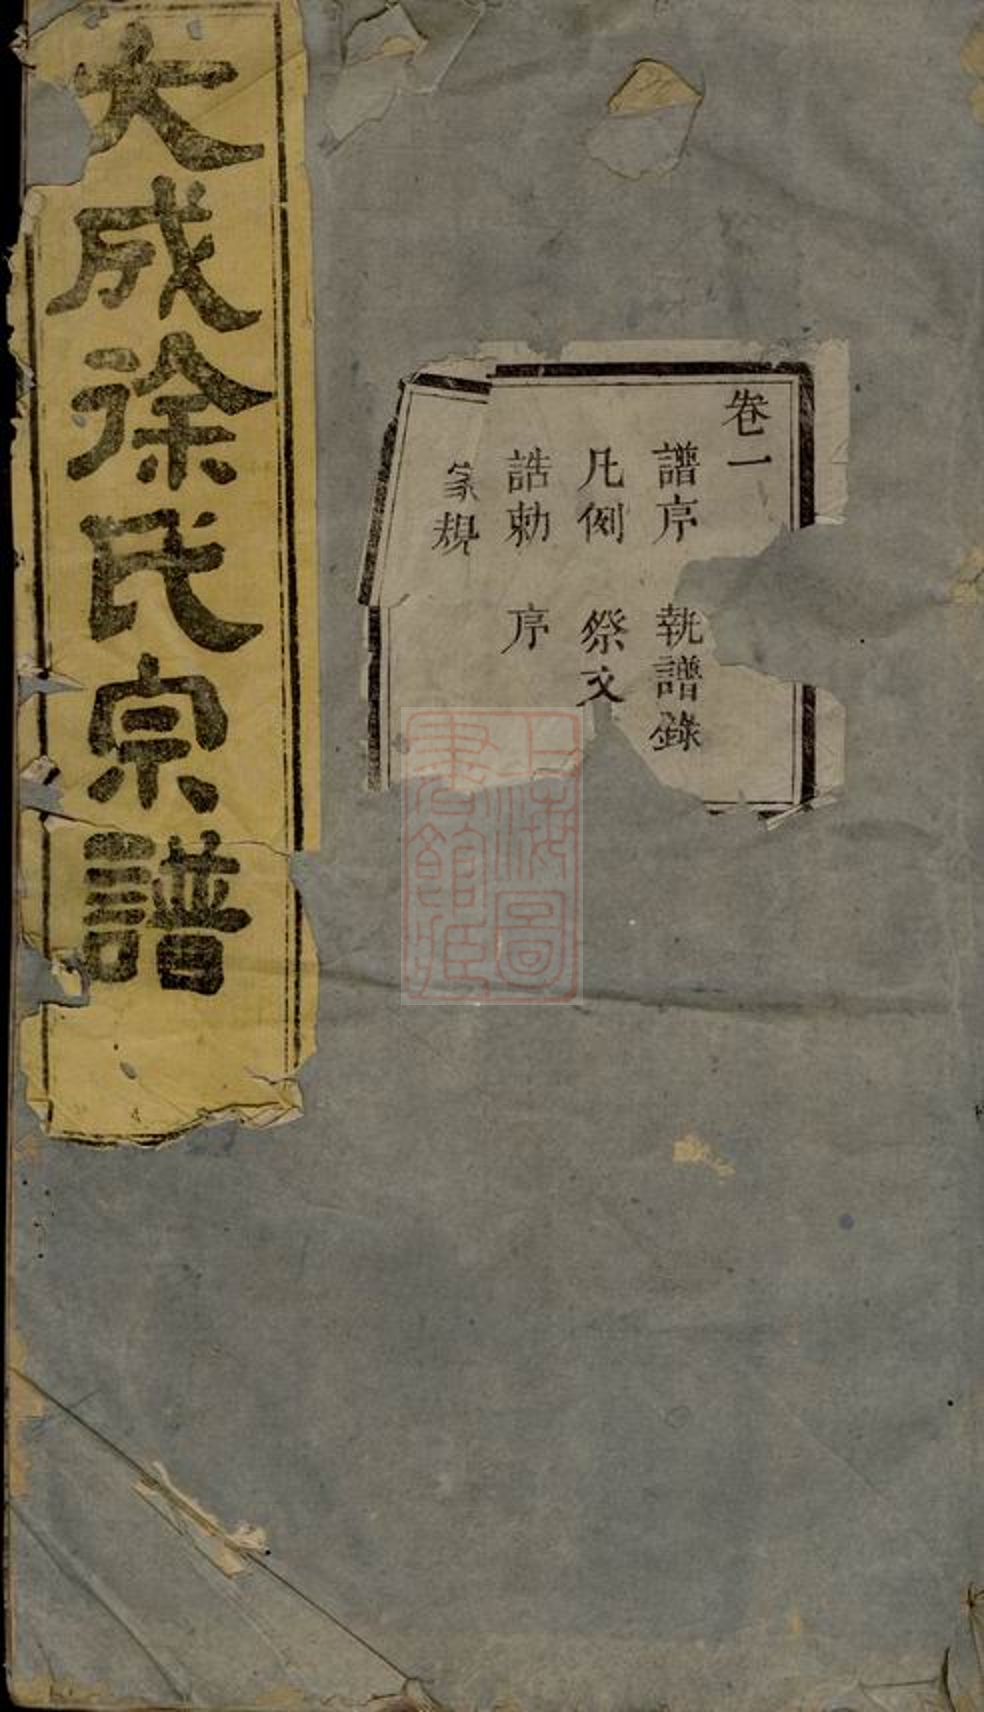 大成徐氏宗譜
卷一
譜序 執譜錄
凡例 祭文
誥勅 序
家規
上海圖
書館藏